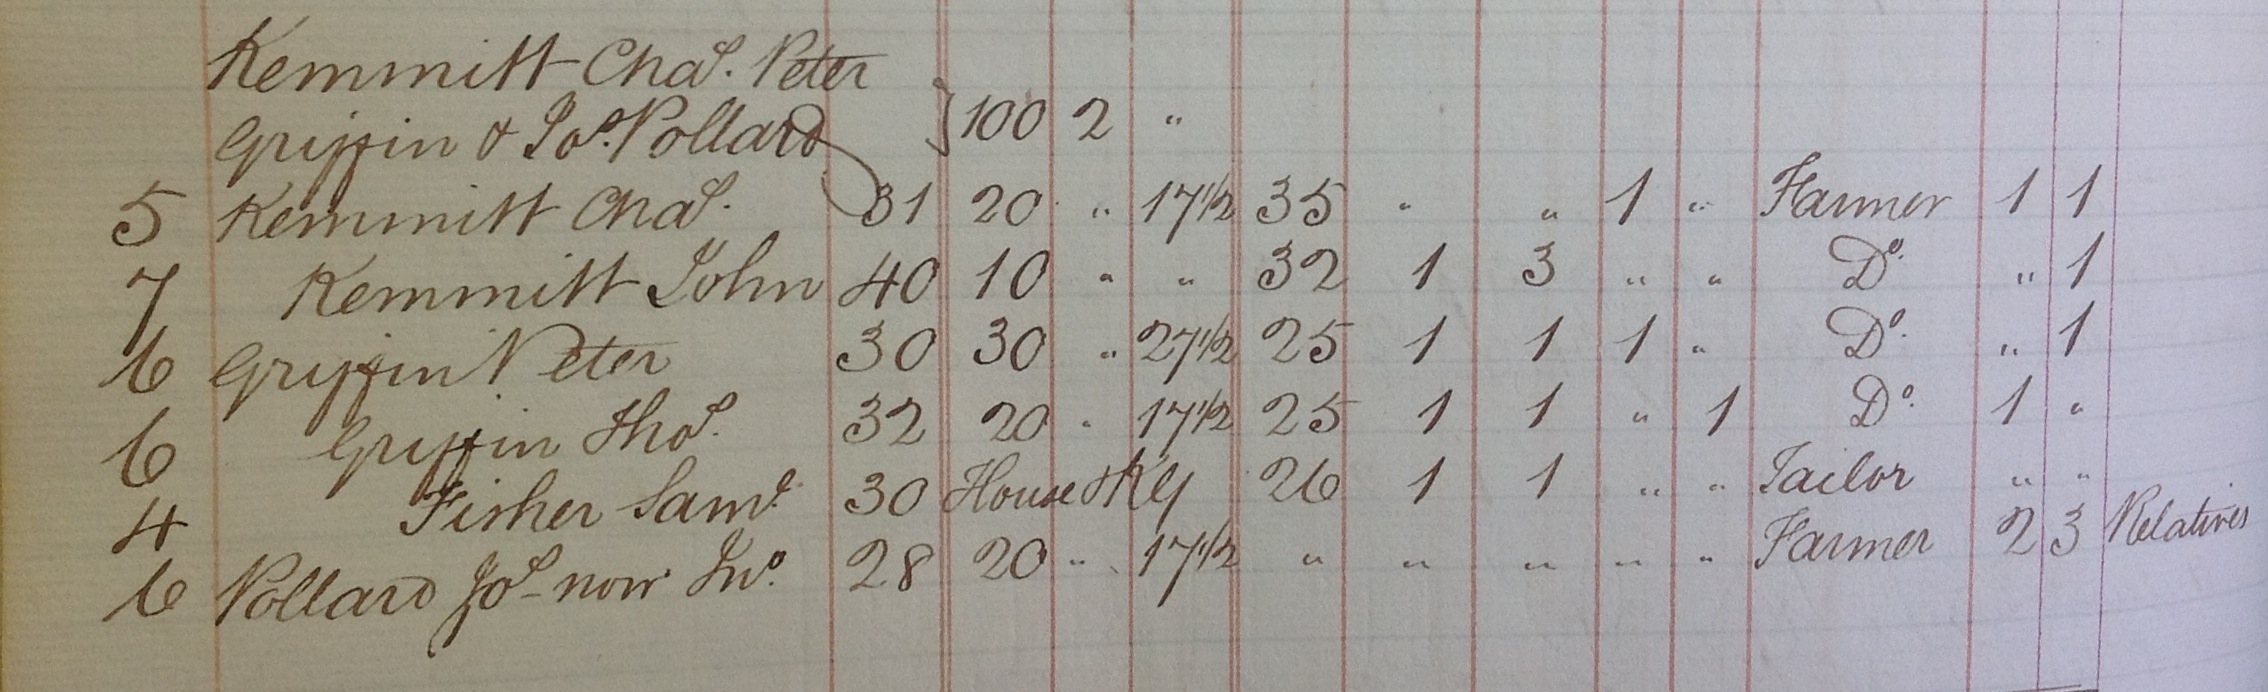 Kemmitt Chas. Peter
Griffin & Jos. Pollard } 100 2 "
5 Kemmitt Chas. 31 20 " 17½ 35 " " 1 " Farmer 1 1
7 Kemmitt John 40 10 " " 32 1 3 " " Do. " 1
6 Griffin Peter 30 30 " 27½ 25 1 1 1 " Do. " 1
6 Griffin Thos. 32 20 " 17½ 25 1 1 " 1 Do. 1 "
4 Fisher Saml. 30 House & Kg 26 1 1 " " Tailor " "
6 Pollard Jos. now Jno. 28 20 " 17½ " " " " " Farmer 2 3 Relatives